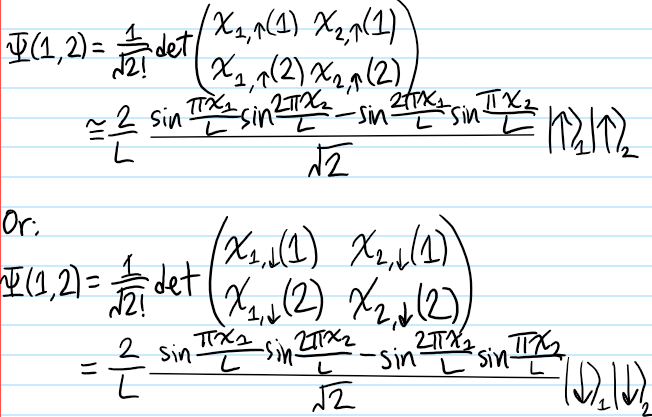 Ψ(1,2) = 1/√2! det ( χ₁,↑(1) χ₂,↑(1) ; χ₁,↑(2) χ₂,↑(2) )
≅ 2/L (sin πx₁/L sin 2πx₂/L − sin 2πx₁/L sin πx₂/L)/√2 |↑⟩₁|↑⟩₂
Or:
Ψ(1,2) = 1/√2! det ( χ₁,↓(1) χ₂,↓(1) ; χ₁,↓(2) χ₂,↓(2) )
= 2/L (sin πx₁/L sin 2πx₂/L − sin 2πx₁/L sin πx₂/L)/√2 |↓⟩₁|↓⟩₂